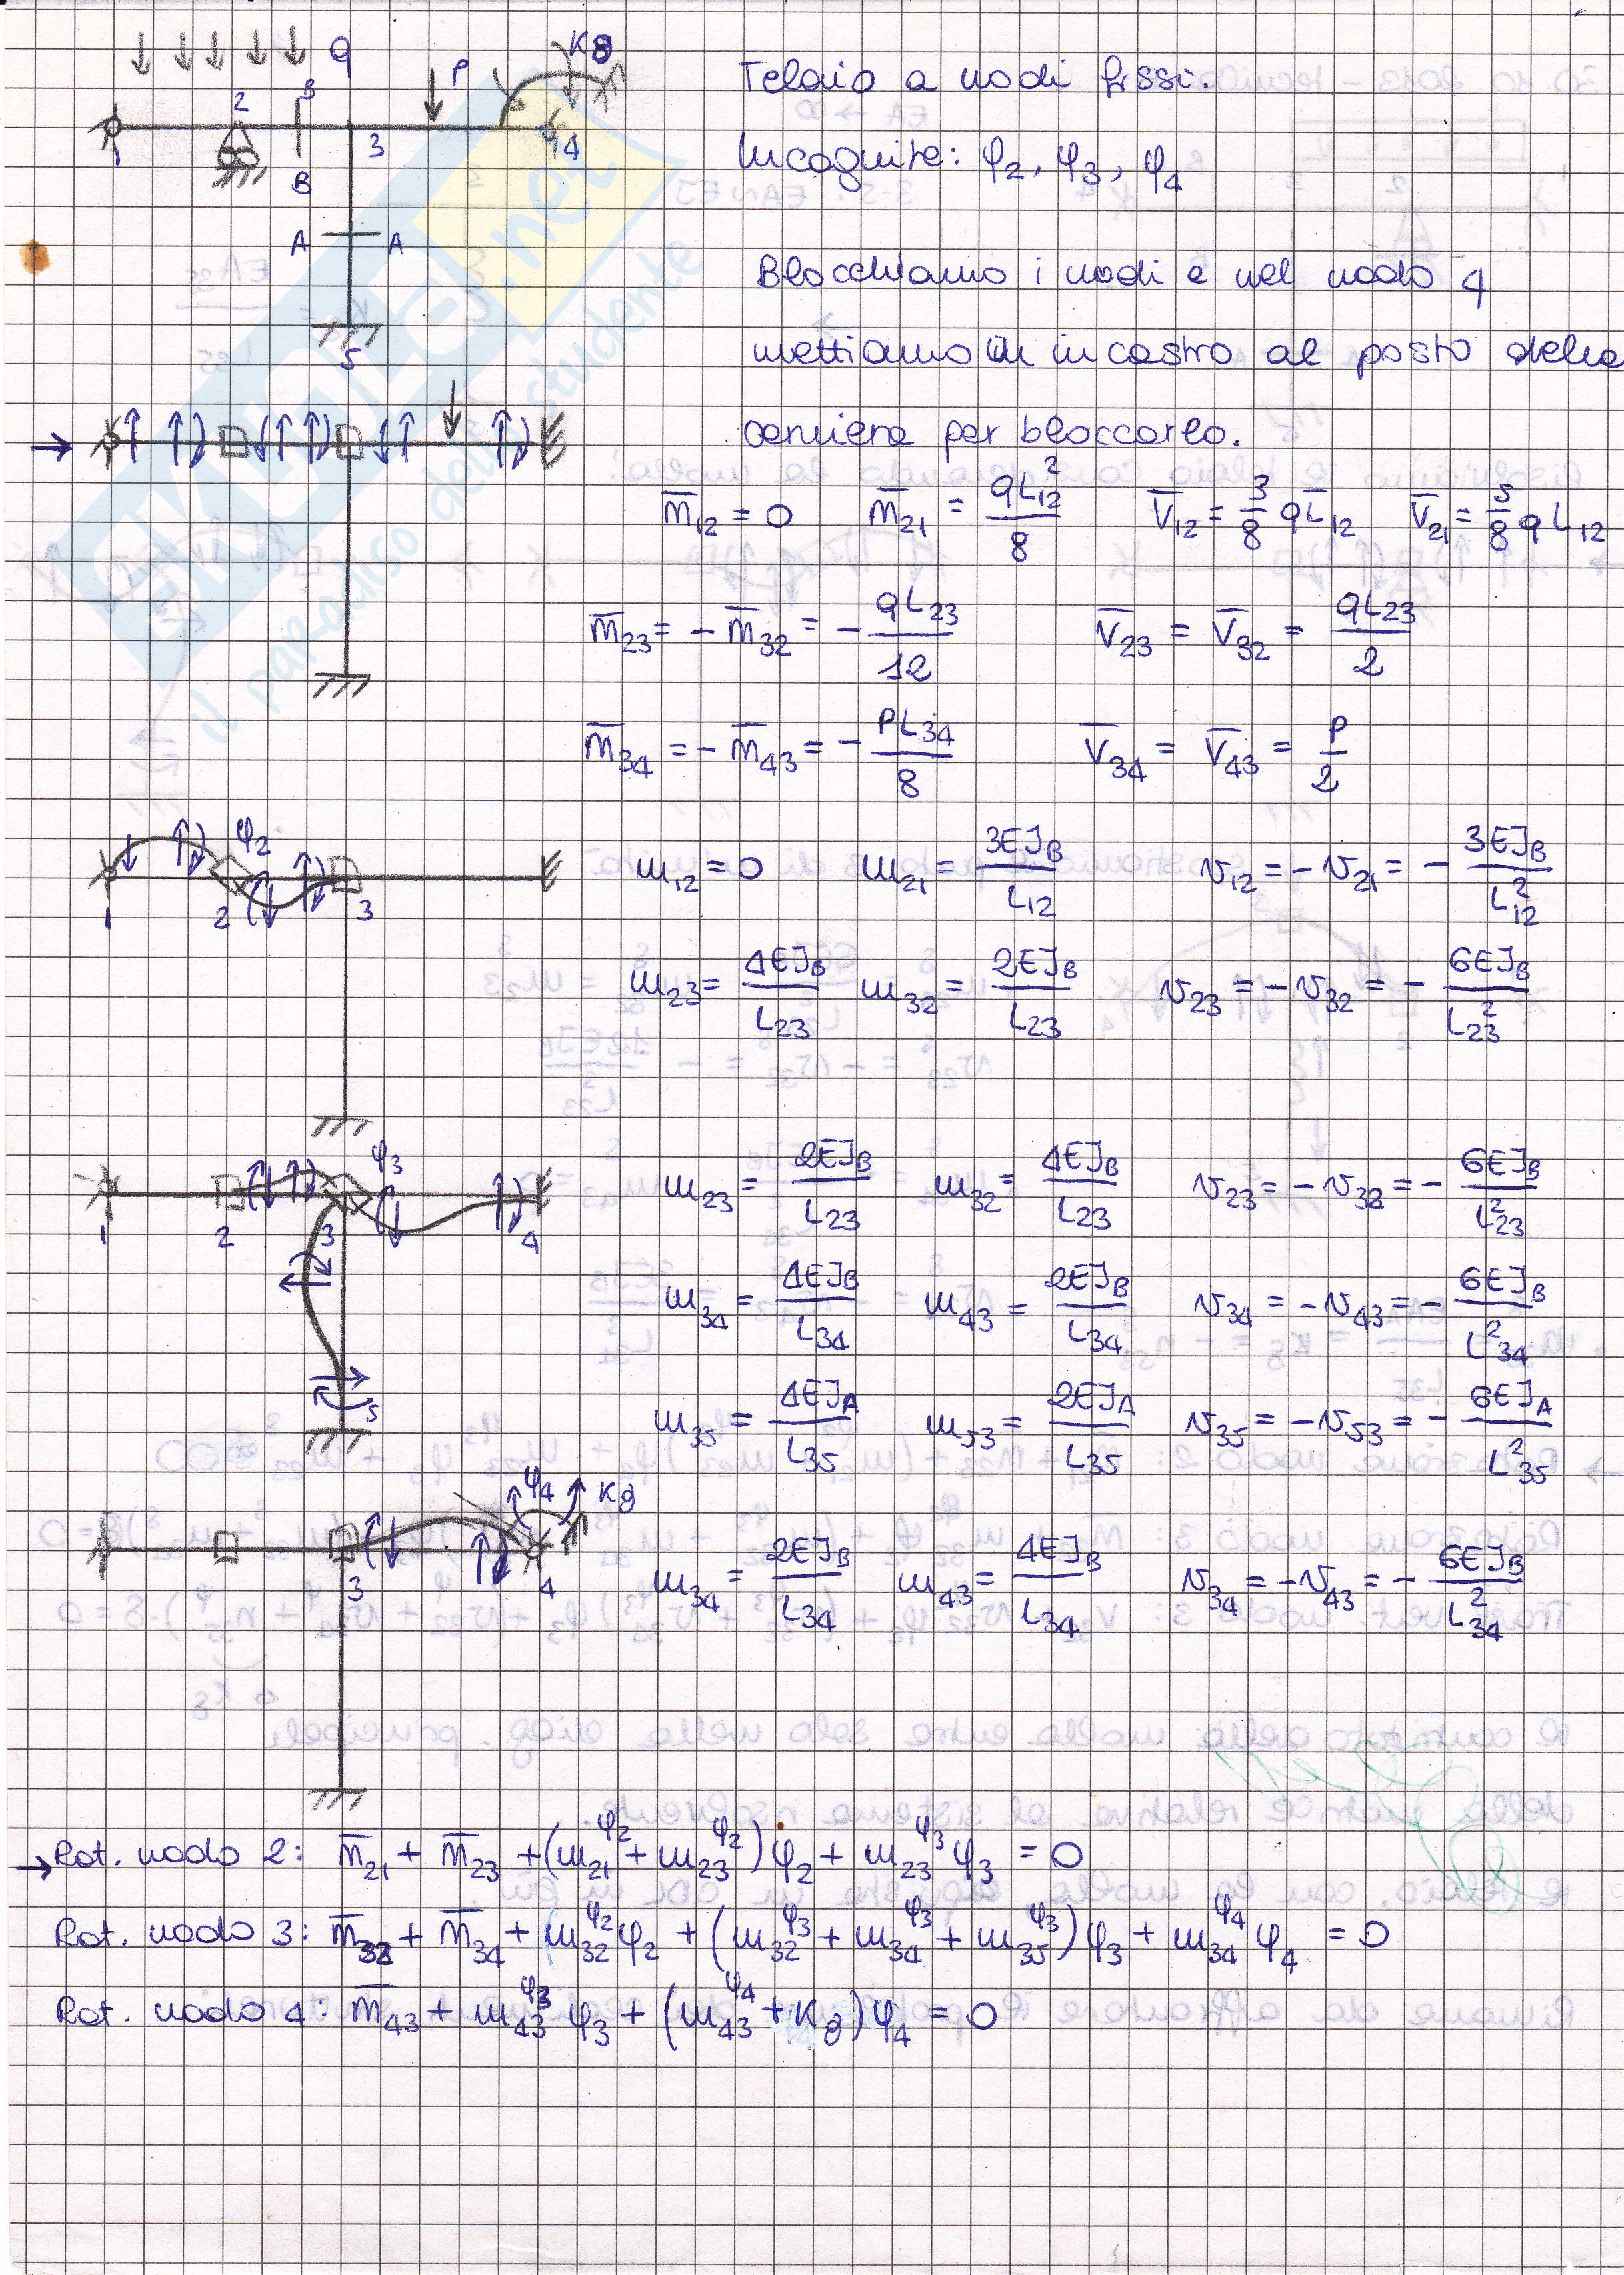 q
P
Kθ
2
B
1
3
4
B
A A
5
Telaio a nodi fissi.
Incognite: φ2, φ3, φ4
Blocchiamo i nodi e nel nodo 4
mettiamo un incastro al posto della
cerniera per bloccarlo.
M̅12 = 0 M̅21 = qL12²/8 V̅12 = 3/8 qL12 V̅21 = 5/8 qL12
M̅23 = - M̅32 = - qL23/12 V̅23 = V̅32 = qL23/2
M̅34 = - M̅43 = - PL34/8 V̅34 = V̅43 = P/2
φ2
1 2 3
m12 = 0 m21 = 3EJB/L12 v12 = -v21 = - 3EJB/L12²
m23 = 4EJB/L23 m32 = 2EJB/L23 v23 = -v32 = - 6EJB/L23²
φ3
1 2 3 4
5
m23 = 2EJB/L23 m32 = 4EJB/L23 v23 = -v32 = - 6EJB/L23²
m34 = 4EJB/L34 m43 = 2EJB/L34 v34 = -v43 = - 6EJB/L34²
m35 = 4EJA/L35 m53 = 2EJA/L35 v35 = -v53 = - 6EJA/L35²
φ4 Kθ
3 4
m34 = 2EJB/L34 m43 = 4EJB/L34 v34 = -v43 = - 6EJB/L34²
→ Rot. nodo 2: M̅21 + M̅23 + (m21^φ2 + m23^φ2)φ2 + m23^φ3 φ3 = 0
Rot. nodo 3: M̅32 + M̅34 + m32^φ2 φ2 + (m32^φ3 + m34^φ3 + m35^φ3)φ3 + m34^φ4 φ4 = 0
Rot. nodo 4: M̅43 + m43^φ3 φ3 + (m43^φ4 + Kθ)φ4 = 0
SKUOLA.net
il paradiso dello studente